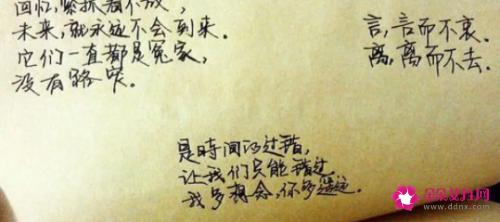 回忆,紧抓着不放,
未来,就永远不会到来.
它们一直都是冤家,
没有路窄.
言,言而不哀.
离,离而不去.
是时间的过错,
让我们只能错过
我多想念,你多遥远.
www.ddnx.com